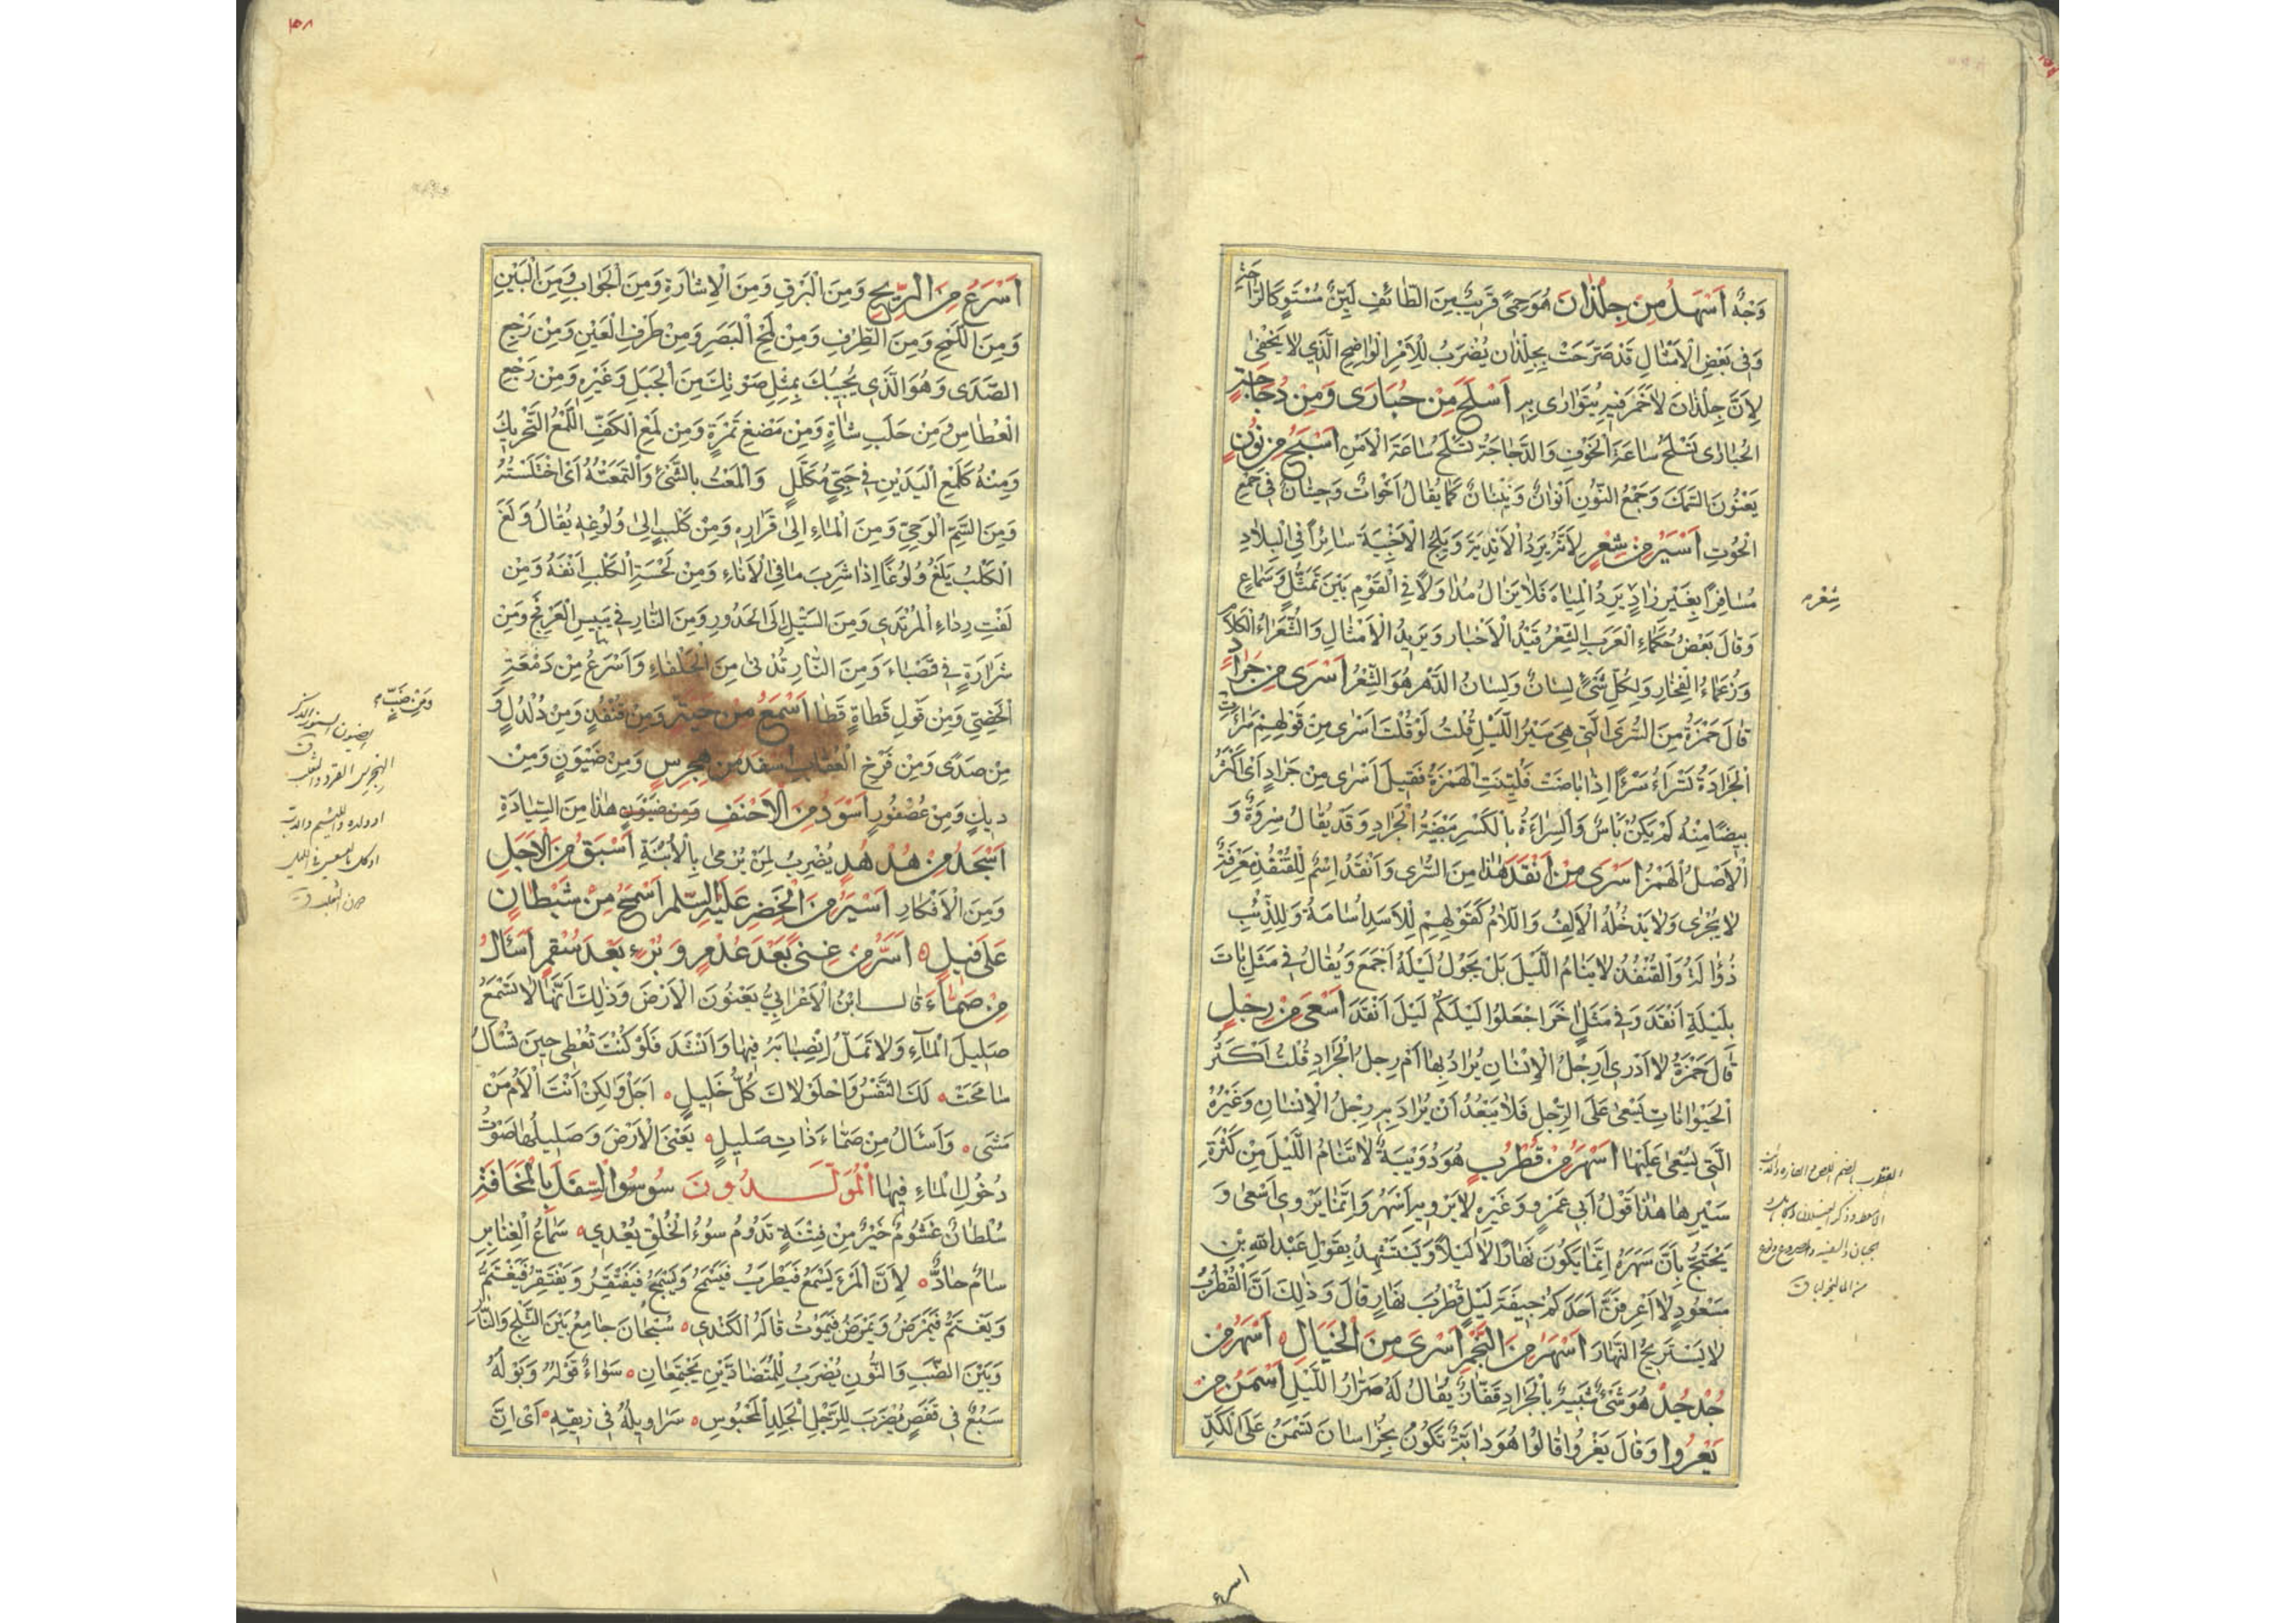 وَجْهٌ اَسْهَلُ مِنْ جِلْذَانَ هُوَ حِمًى قَرِيبٌ مِنَ الطَّائِفِ لَيِّنٌ مُسْتَوٍ كَالرَّاحَةِ
وَفِي بَعْضِ الْاَمْثَالِ قَدْ صَرَّحَتْ بِجِلْذَانَ يُضْرَبُ لِلْاَمْرِ الْوَاضِحِ الَّذِي لَا يَخْفَى
لِاَنَّ جِلْذَانَ لَا خَمَرَ فِيهِ يُتَوَارَى بِهِ اَسْلَحُ مِنْ حُبَارَى وَمِنْ دُجَاجَةٍ
الْحُبَارَى تَسْلَحُ سَاعَةَ الْخَوْفِ وَالدَّجَاجَةُ تَسْلَحُ سَاعَةَ الْاَمْنِ اَسْبَحُ مِنْ نُونٍ
يَعْنُونَ السَّمَكَ وَجَمْعُ النُّونِ اَنْوَانٌ وَنِينَانٌ كَمَا يُقَالُ اَحْوَاتٌ وَحِيتَانٌ فِي جَمْعِ
الْحُوتِ اَسْيَرُ مِنْ شِعْرٍ لِاَنَّهُ يَرِدُ الْاَنْدِيَةَ وَيَلِجُ الْاَخْبِيَةَ سَائِرًا فِي الْبِلَادِ
مُسَافِرًا بِغَيْرِ زَادٍ يَرِدُ الْمِيَاهَ فَلَا يَزَالُ مُدَاوَلًا فِي الْقَوْمِ بَيْنَ تَمَثُّلٍ وَسَمَاعٍ
شِعْره
وَقَالَ بَعْضُ حُكَمَاءِ الْعَرَبِ الشِّعْرُ قَيْدُ الْاَخْبَارِ وَبَرِيدُ الْاَمْثَالِ وَالشُّعَرَاءُ اُمَرَاءُ الْكَلَامِ
وَزُعَمَاءُ الْفِخَارِ وَلِكُلِّ شَيْءٍ لِسَانٌ وَلِسَانُ الدَّهْرِ هُوَ الشِّعْرُ اَسْرَى مِنْ جَرَادٍ
قَالَ حَمْزَةُ مِنَ السُّرَى الَّتِي هِيَ سَيْرُ اللَّيْلِ قُلْتُ لَوْ قُلْتَ اَسْرَى مِنْ قَوْلِهِمْ سَرَأَتِ
الْجَرَادَةُ تَسْرَأُ سَرْءًا اِذَا بَاضَتْ فَلُيِّنَتِ الْهَمْزَةُ فَقِيلَ اَسْرَى مِنْ جَرَادٍ اَيْ اَكْثَرُ
بَيْضًا مِنْهُ لَمْ يَكُنْ بَاْسٌ وَالسِّرَاءَةُ بِالْكَسْرِ بَيْضَةُ الْجَرَادِ وَقَدْ يُقَالُ سِرْوَةٌ وَ
الْاَصْلُ الْهَمْزُ اَسْرَى مِنْ اَنْقَدَ هَذَا مِنَ السُّرَى وَاَنْقَدُ اِسْمٌ لِلْقُنْفُذِ مَعْرِفَةٌ
لَا يُجْرَى وَلَا يَدْخُلُهُ الْاَلِفُ وَاللَّامُ كَقَوْلِهِمْ لِلْاَسَدِ اُسَامَةُ وَلِلذِّئْبِ
ذُؤَالَةُ وَالْقُنْفُذُ لَا يَنَامُ اللَّيْلَ بَلْ يَجُولُ لَيْلَهُ اَجْمَعَ وَيُقَالُ فِي مَثَلٍ بَاتَ
بِلَيْلَةِ اَنْقَدَ وَفِي مَثَلٍ آخَرَ اجْعَلُوا لَيْلَكُمْ لَيْلَ اَنْقَدَ اَسْعَى مِنْ رِجْلٍ
قَالَ حَمْزَةُ لَا اَدْرِي اَرِجْلُ الْاِنْسَانِ يُرَادُ بِهَا اَمْ رِجْلُ الْجَرَادِ قُلْتُ اَكْثَرُ
الْحَيَوَانَاتِ يَسْعَى عَلَى الرِّجْلِ فَلَا يَبْعُدُ اَنْ يُرَادَ بِهِ رِجْلُ الْاِنْسَانِ وَغَيْرُهُ
الَّتِي يَسْعَى عَلَيْهَا اَسْهَرُ مِنْ قُطْرُبٍ هُوَ دُوَيْبَةٌ لَا تَنَامُ اللَّيْلَ مِنْ كَثْرَةِ
سَيْرِهَا هَذَا قَوْلُ اَبِي عَمْرٍو وَغَيْرِهِ لَا يَرْوِيهِ اَسْهَرُ وَاِنَّمَا يَرْوِي اَسْعَى وَ
يَحْتَجُّ بِاَنَّ سَهَرَهُ اِنَّمَا يَكُونُ نَهَارًا لَا لَيْلًا وَيَسْتَشْهِدُ بِقَوْلِ عَبْدِ اللهِ بْنِ
مَسْعُودٍ لَا اَعْرِفَنَّ اَحَدَكُمْ جِيفَةَ لَيْلٍ قُطْرُبَ نَهَارٍ قَالَ وَذَلِكَ اَنَّ الْقُطْرُبَ
لَا يَسْتَرِيحُ النَّهَارَ اَسْهَرُ مِنَ النَّجْمِ اَسْرَى مِنَ الْخَيَالِ اَسْهَرُ مِنْ
جُدْجُدٍ هُوَ شَيْءٌ شَبِيهٌ بِالْجَرَادِ قَفَّازٌ يُقَالُ لَهُ صَرَّارُ اللَّيْلِ اَسْمَنُ مِنْ
يَعْرُوا وَقَالَ يَغْرُوا قَالُوا هُوَ دَابَّةٌ تَكُونُ بِخُرَاسَانَ تَسْمَنُ عَلَى الْكَدِّ
اسرع
اَسْرَعُ مِنَ الرِّيحِ وَمِنَ الْبَرْقِ وَمِنَ الْاِشَارَةِ وَمِنَ الْجَوَابِ وَمِنَ الْبَيْنِ
وَمِنَ اللَّمْحِ وَمِنَ الطَّرْفِ وَمِنْ لَمْحِ الْبَصَرِ وَمِنْ طَرْفِ الْعَيْنِ وَمِنْ رَجْعِ
الصَّدَى وَهُوَ الَّذِي يُجِيبُكَ بِمِثْلِ صَوْتِكَ مِنَ الْجَبَلِ وَغَيْرِهِ وَمِنْ رَجْعِ
الْعُطَاسِ وَمِنْ حَلَبِ شَاةٍ وَمِنْ مَضْغِ تَمْرَةٍ وَمِنْ لَمْعِ الْكَفِّ اللَّمْعُ التَّحْرِيكُ
وَمِنْهُ كَلَمْعِ الْيَدَيْنِ فِي حَبِيٍّ مُكَلَّلِ وَاَلْمَعْتُ بِالشَّيْءِ وَالْتَمَعْتُهُ اَيْ اخْتَلَسْتُهُ
وَمِنَ السَّمِّ الْوَحِيِّ وَمِنَ الْمَاءِ اِلَى قَرَارِهِ وَمِنْ كَلْبٍ اِلَى وُلُوغِهِ يُقَالُ وَلَغَ
الْكَلْبُ يَلَغُ وُلُوغًا اِذَا شَرِبَ مَا فِي الْاِنَاءِ وَمِنْ لَحْسَةِ الْكَلْبِ اَنْفَهُ وَمِنْ
لَفْتِ رِدَاءِ الْمُرْتَدِي وَمِنَ السَّيْلِ اِلَى الْحَدُورِ وَمِنَ النَّارِ فِي يَبِيسِ الْعَرْفَجِ وَمِنْ
شَرَارَةٍ فِي قَصْبَاءَ وَمِنَ النَّارِ تُدْنَى مِنَ الْحَلْفَاءِ وَاَسْرَعُ مِنْ دَمْعَةِ
الْخَصِيِّ وَمِنْ قَوْلِ قَطَاةٍ قَطَا اَسْمَعُ مِنْ حَيَّةٍ وَمِنْ قُنْفُذٍ وَمِنْ دُلْدُلٍ وَ
وَمِنْ ضَبٍّ
مِنْ صَدًى وَمِنْ فَرْخِ الْعُقَابِ اَسْفَدُ مِنْ هِجْرِسٍ وَمِنْ ضَيْوَنٍ وَمِنْ
دِيكٍ وَمِنْ عُصْفُورٍ اَسْوَدُ مِنَ الْاَحْنَفِ وَمِنْ ضَيْوَنٍ هَذَا مِنَ السِّيَادَةِ
اَسْجَدُ مِنْ هُدْهُدٍ يُضْرَبُ لِمَنْ يُرْمَى بِالْاُبْنَةِ اَسْبَقُ مِنَ الْاَجَلِ
وَمِنَ الْاَفْكَارِ اَسْيَرُ مِنَ الْخَضِرِ عَلَيْهِ السَّلم اَسْمَجُ مِنْ شَيْطَانٍ
عَلَى فِيلٍ اَسَرُّ مِنْ غِنًى بَعْدَ عُدْمٍ وَبُرْءٍ بَعْدَ سُقْمٍ اَسْأَلُ
مِنْ صَمَّاءَ قال ابْنُ الْاَعْرَابِيِّ يَعْنُونَ الْاَرْضَ وَذَلِكَ اَنَّهَا لَا تَسْمَعُ
صَلِيلَ الْمَاءِ وَلَا تَمَلُّ اِنْصِبَابَهُ فِيهَا وَاَنْشَدَ فَلَوْ كُنْتَ تُعْطِي حِينَ تُسْأَلُ
سَامَحَتْ لَكَ النَّفْسُ وَاحْلَوْلَاكَ كُلُّ خَلِيلِ اَجَلْ وَلَكِنْ اَنْتَ اَلْأَمُ مَنْ
مَشَى وَاَسْأَلُ مِنْ صَمَّاءَ ذَاتِ صَلِيلِ يَعْنِي الْاَرْضَ وَصَلِيلُهَا صَوْتُ
دُخُولِ الْمَاءِ فِيهَا الْمُوَلَّدُونَ سُوسُوا السِّفَلَ بِالْمَخَافَةِ
سُلْطَانٌ غَشُومٌ خَيْرٌ مِنْ فِتْنَةٍ تَدُومُ سُوءُ الْخُلُقِ يُعْدِي سَمَاعُ الْغِنَا بِرْ
سَامٌ حَادٌّ لِاَنَّ الْمَرْءَ يَسْمَعُ فَيَطْرَبُ فَيَسْمَحُ فَيَفْتَقِرُ وَيَفْتَقِرُ فَيَغْتَمُّ
وَيَغْتَمُّ فَيَمْرَضُ وَيَمْرَضُ فَيَمُوتُ قَالَهُ الْكِنْدِي سُبْحَانَ جَامِعِ بَيْنَ الثَّلْجِ وَالنَّارِ
وَبَيْنَ الضَّبِّ وَالنُّونِ يُضْرَبُ لِلْمُتَضَادَّيْنِ يَجْتَمِعَانِ سَوَاءٌ قَوْلُهُ وَبَوْلُهُ
سَبُعٌ فِي قَفَصٍ يُضْرَبُ لِلرَّجُلِ الْجَلْدِ الْمَحْبُوسِ سَرَاوِيلُهُ فِي زِيقِهِ اَيْ اِنَّ